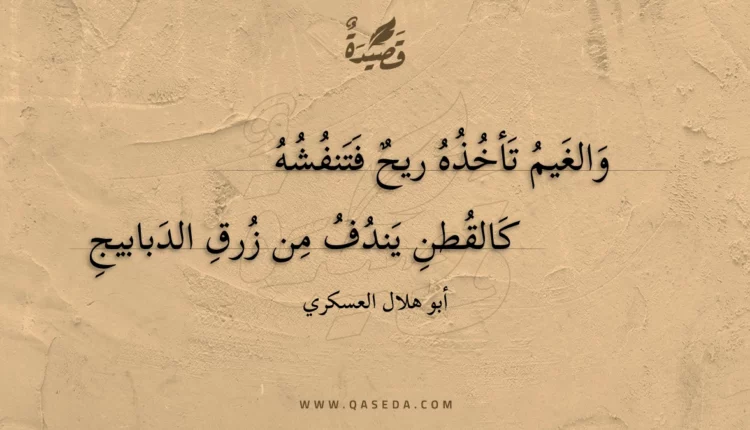 قَصِيدَةٌ
وَالغَيمُ تَأخُذُهُ ريحٌ فَتَنفُشُهُ
كَالقُطنِ يَندُفُ مِن زُرقِ الدَبابيجِ
أبو هلال العسكري
WWW.QASEDA.COM